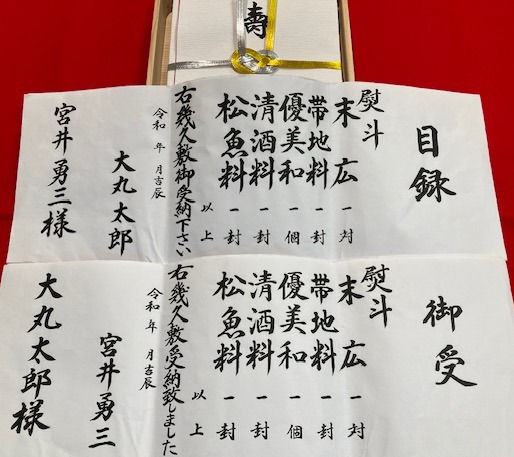 寿
目録
熨斗
末広 一対
帯地料 一封
優美和 一個
清酒料 一封
松魚料 一封
以上
右幾久敷御受納下さい
令和 年 月吉辰
大丸太郎
宮井勇三様
御受
熨斗
末広 一対
帯地料 一封
優美和 一個
清酒料 一封
松魚料 一封
以上
右幾久敷受納致しました
令和 年 月吉辰
宮井勇三
大丸太郎様